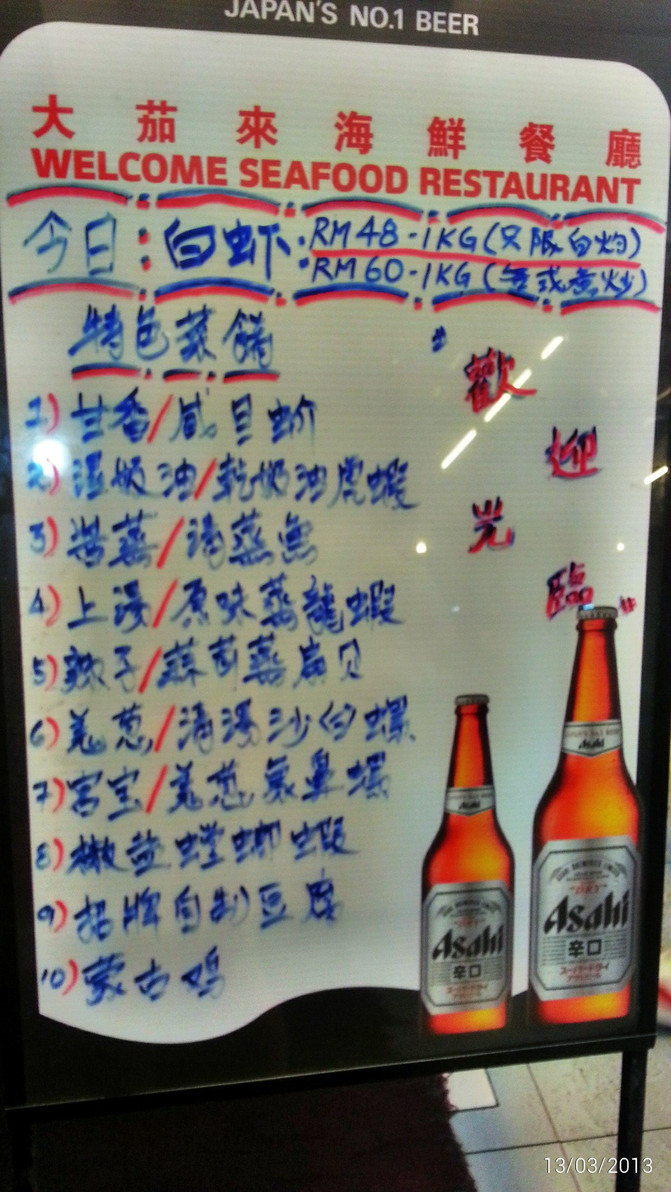 JAPAN'S NO.1 BEER
大茄來海鮮餐廳
WELCOME SEAFOOD RESTAURANT
今日:白虾:RM48-1KG(只限白灼)
RM60-1KG(炒)
特色菜餚
1) 甘香/咸旦
2) 湿奶油/乾奶油虎蝦
3) 蒸/清蒸魚
4) 上湯/原味蒸龍蝦
5) 辣子/蒜茸蒸扇贝
6) 姜葱/清湯沙白螺
7) 宫宝/姜葱象鼻螺
8) 椒盐螳螂蝦
9) 招牌自制豆腐
10) 蒙古鸡
歡迎光臨
JAPAN'S No.1 BEER
Asahi
"DRY"
Asahi
辛口
スーパードライ
Asahi
Asahi
辛口
スーパードライ
13/03/2013